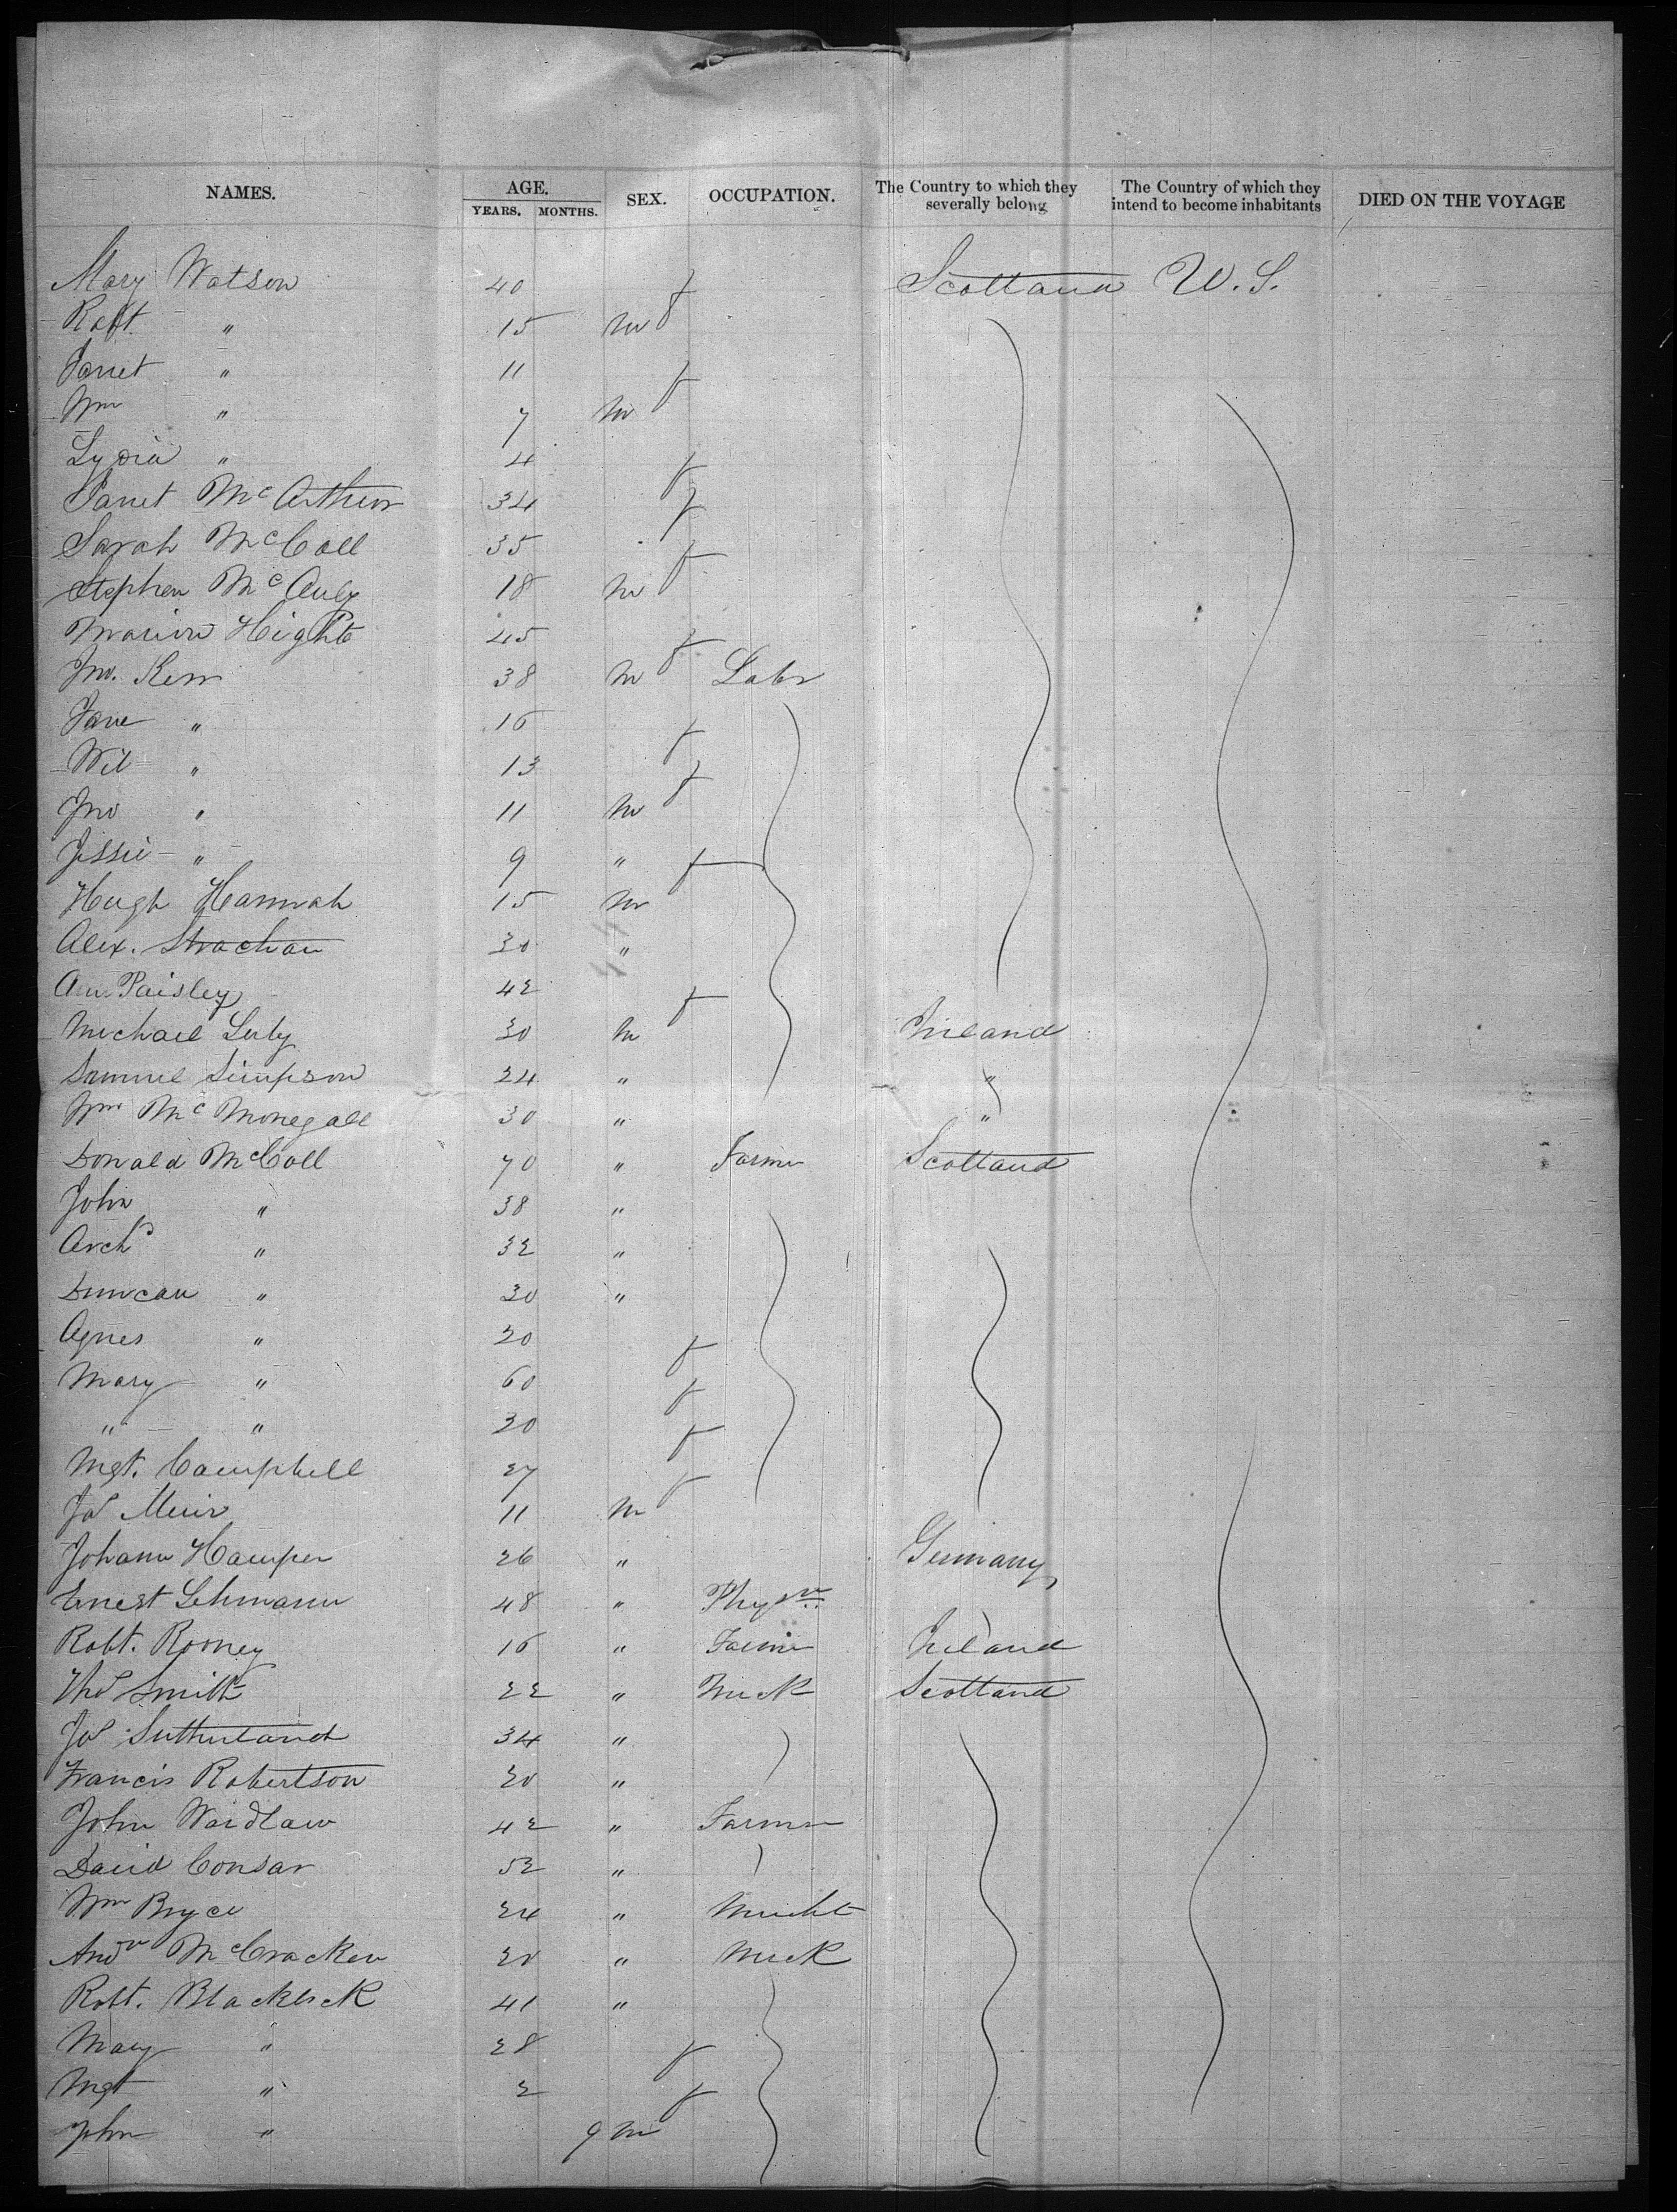 NAMES. AGE. YEARS. MONTHS. SEX. OCCUPATION. The Country to which they severally belong The Country of which they intend to become inhabitants DIED ON THE VOYAGE
Mary Watson 40 f Scotland U.S.
Robt " 15 m
Janet " 11 f
Wm " 7 m
Lydia " 4 f
Janet McArthur 34 f
Sarah McColl 35 f
Stephen McAuly 18 m
Marion Hight 45 f
Jno. Kerr 38 m Labr
Jane " 16 f
Wil " 13 f
Jno " 11 m
Jessie " 9 " f
Hugh Hannah 15 m
Alex. Strachan 30 "
Ann Paisley 42 f
Michael Luby 30 m Ireland
Samuel Simpson 24 " "
Wm McMonegall 30 " "
Donald McColl 70 " Farmer Scotland
John " 38 "
Archd " 32 "
Duncan " 30 "
Agnes " 20 f
Mary " 60 f
" " 20 f
Mgt. Campbell 27 f
Jas Muir 11 m
Johann Hamper 26 " Germany
Ernest Lehmann 48 " Physn
Robt. Rooney 16 " Farmer Ireland
Thos Smith 22 " Mech Scotland
Jas Sutherland 34 "
Francis Robertson 20 "
John Waidlaw 42 " Farmer
David Consar 52 "
Wm Bryce 24 " Mercht
Andw McCracken 20 " Mech
Robt. Blacklock 41 "
Mary " 28 f
Mgt " 2 f
John " 9 m